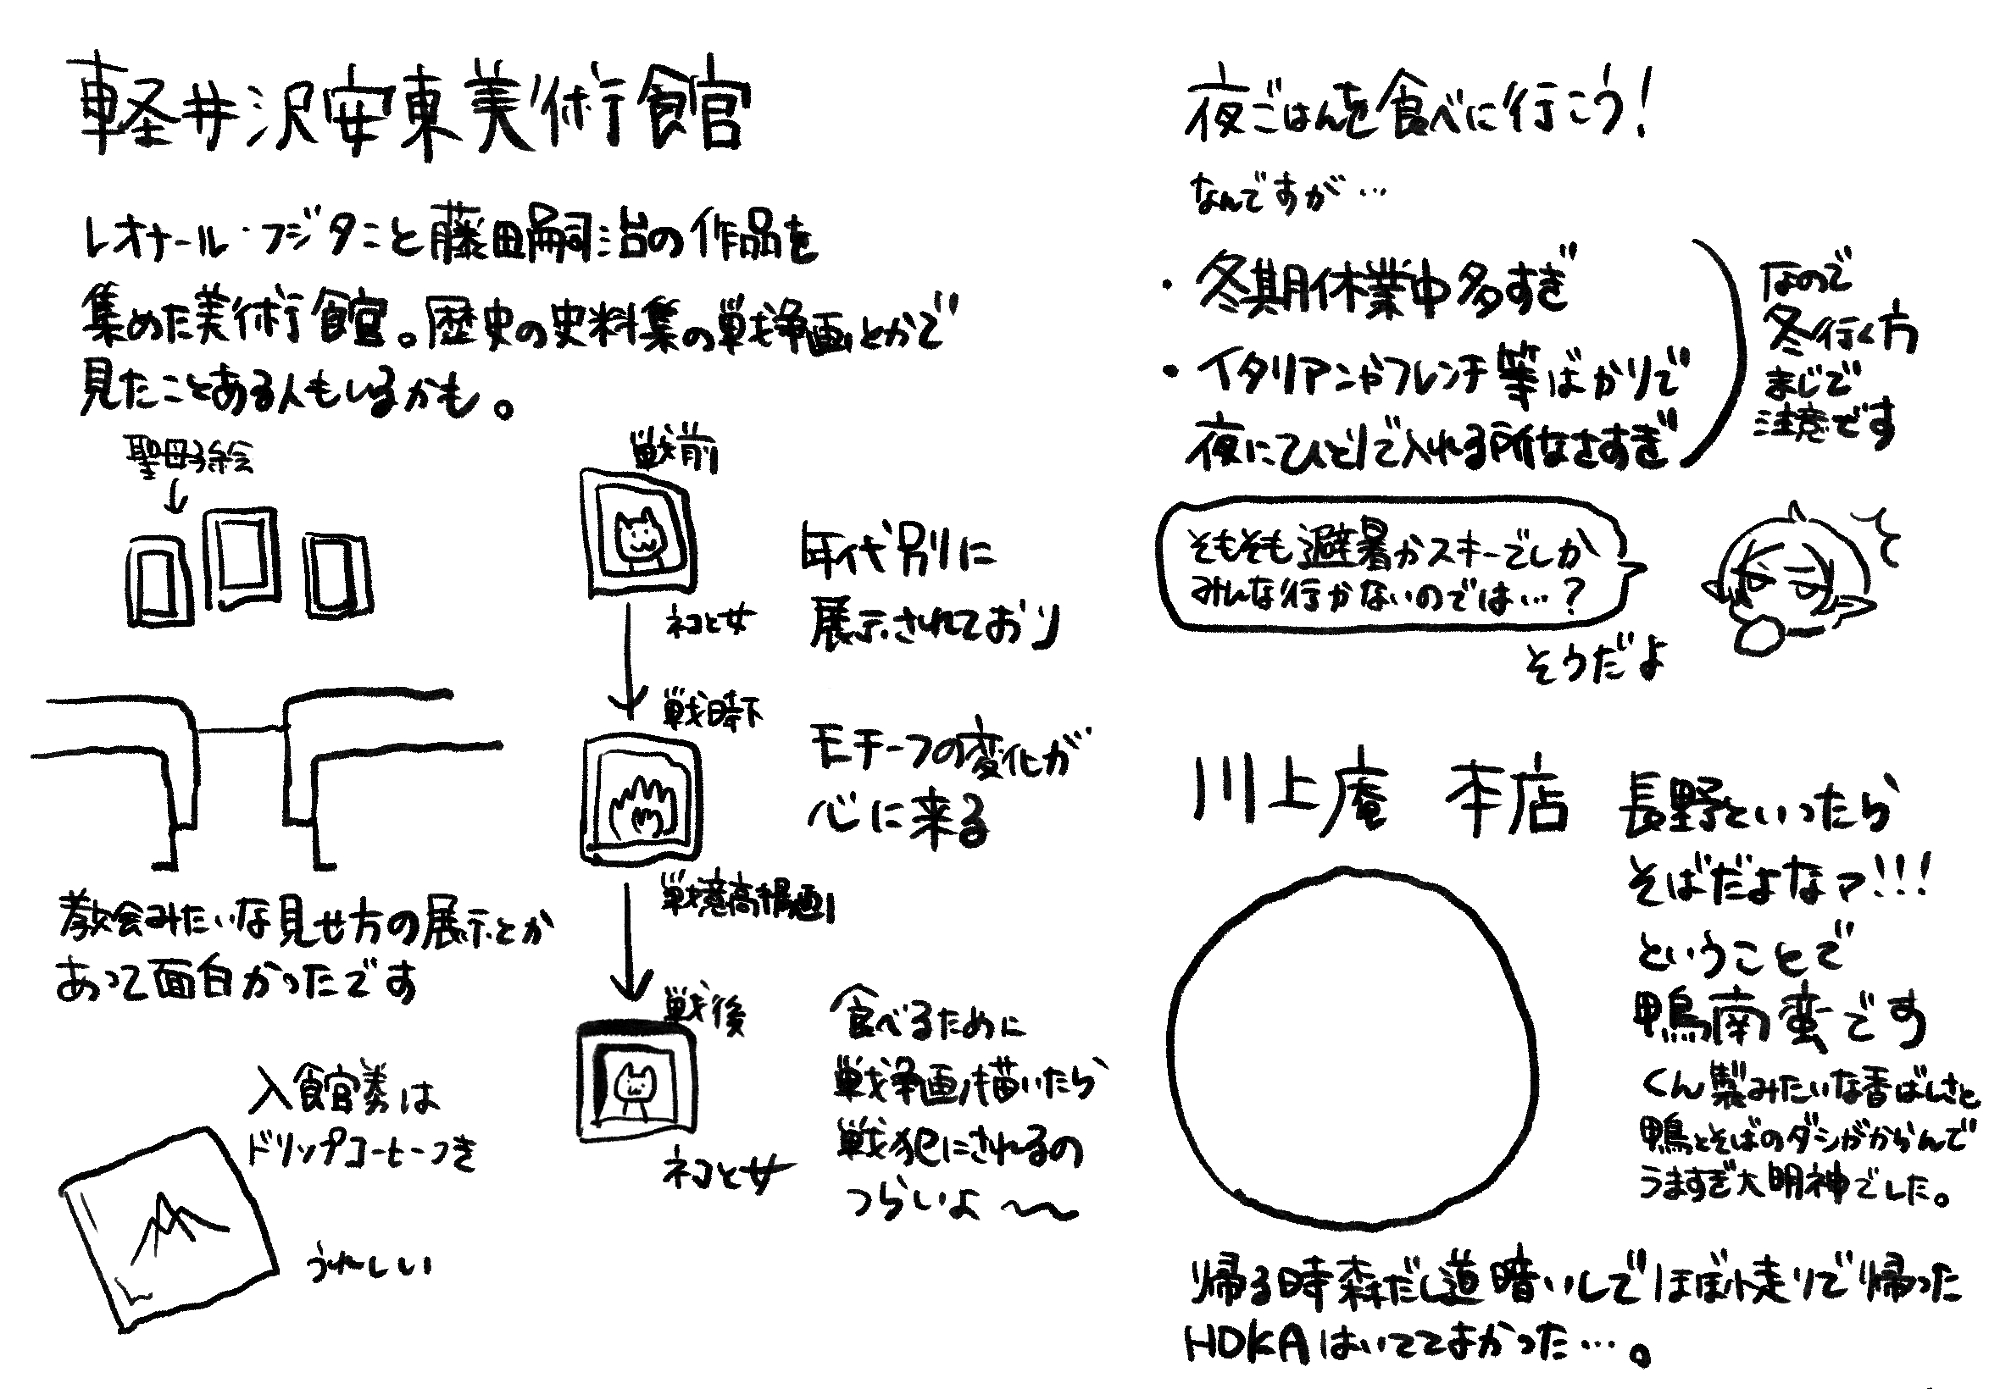 軽井沢安東美術館
レオナール・フジタこと藤田嗣治の作品を
集めた美術館。歴史の史料集の戦争画とかで
見たことある人もいるかも。
聖母子絵
教会みたいな見せ方の展示とか
あって面白かったです
入館券は
ドリップコーヒーつき
うれしい
戦前
ネコと女
戦時下
戦意高揚画
戦後
ネコと女
年代別に
展示されており
モチーフの変化が
心に来る
食べるために
戦争画描いたら
戦犯にされるの
つらいよ〜〜
夜ごはんを食べに行こう!
なんですが…
・冬期休業中多すぎ
・イタリアンやフレンチ等ばかりで
夜にひとりで入れる所なさすぎ
なので
冬行く方
まじで
注意です
そもそも避暑かスキーでしか
みんな行かないのでは…?
そうだよ
川上庵 本店
長野といったら
そばだよなァ!!!
ということで
鴨南蛮です
くん製みたいな香ばしさと
鴨とそばのダシがからんで
うますぎ大明神でした。
帰る時森だし道暗いしでほぼ小走りで帰った
HOKAはいててよかった…。